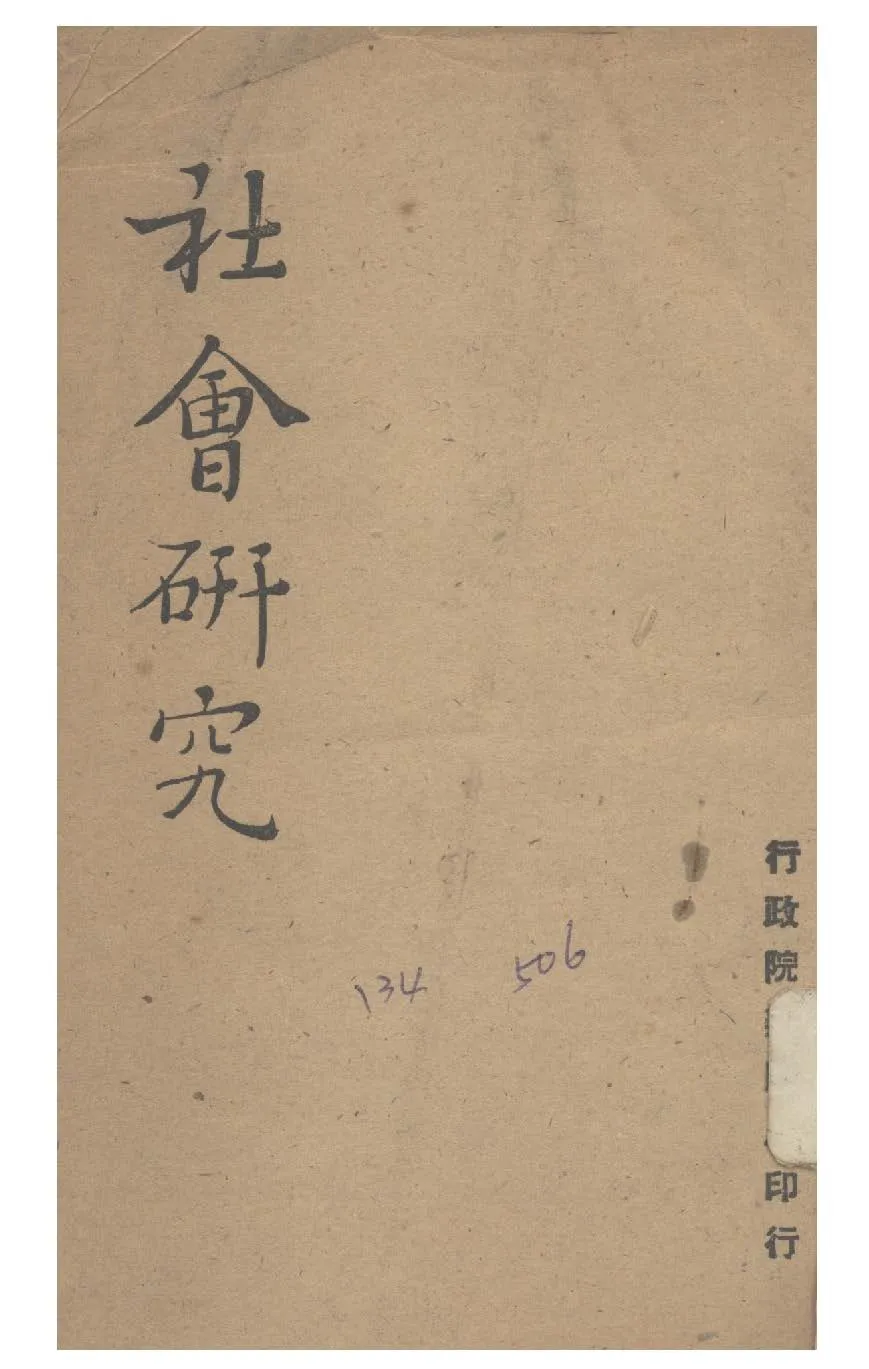 社會研究
134 506
行政院
印行